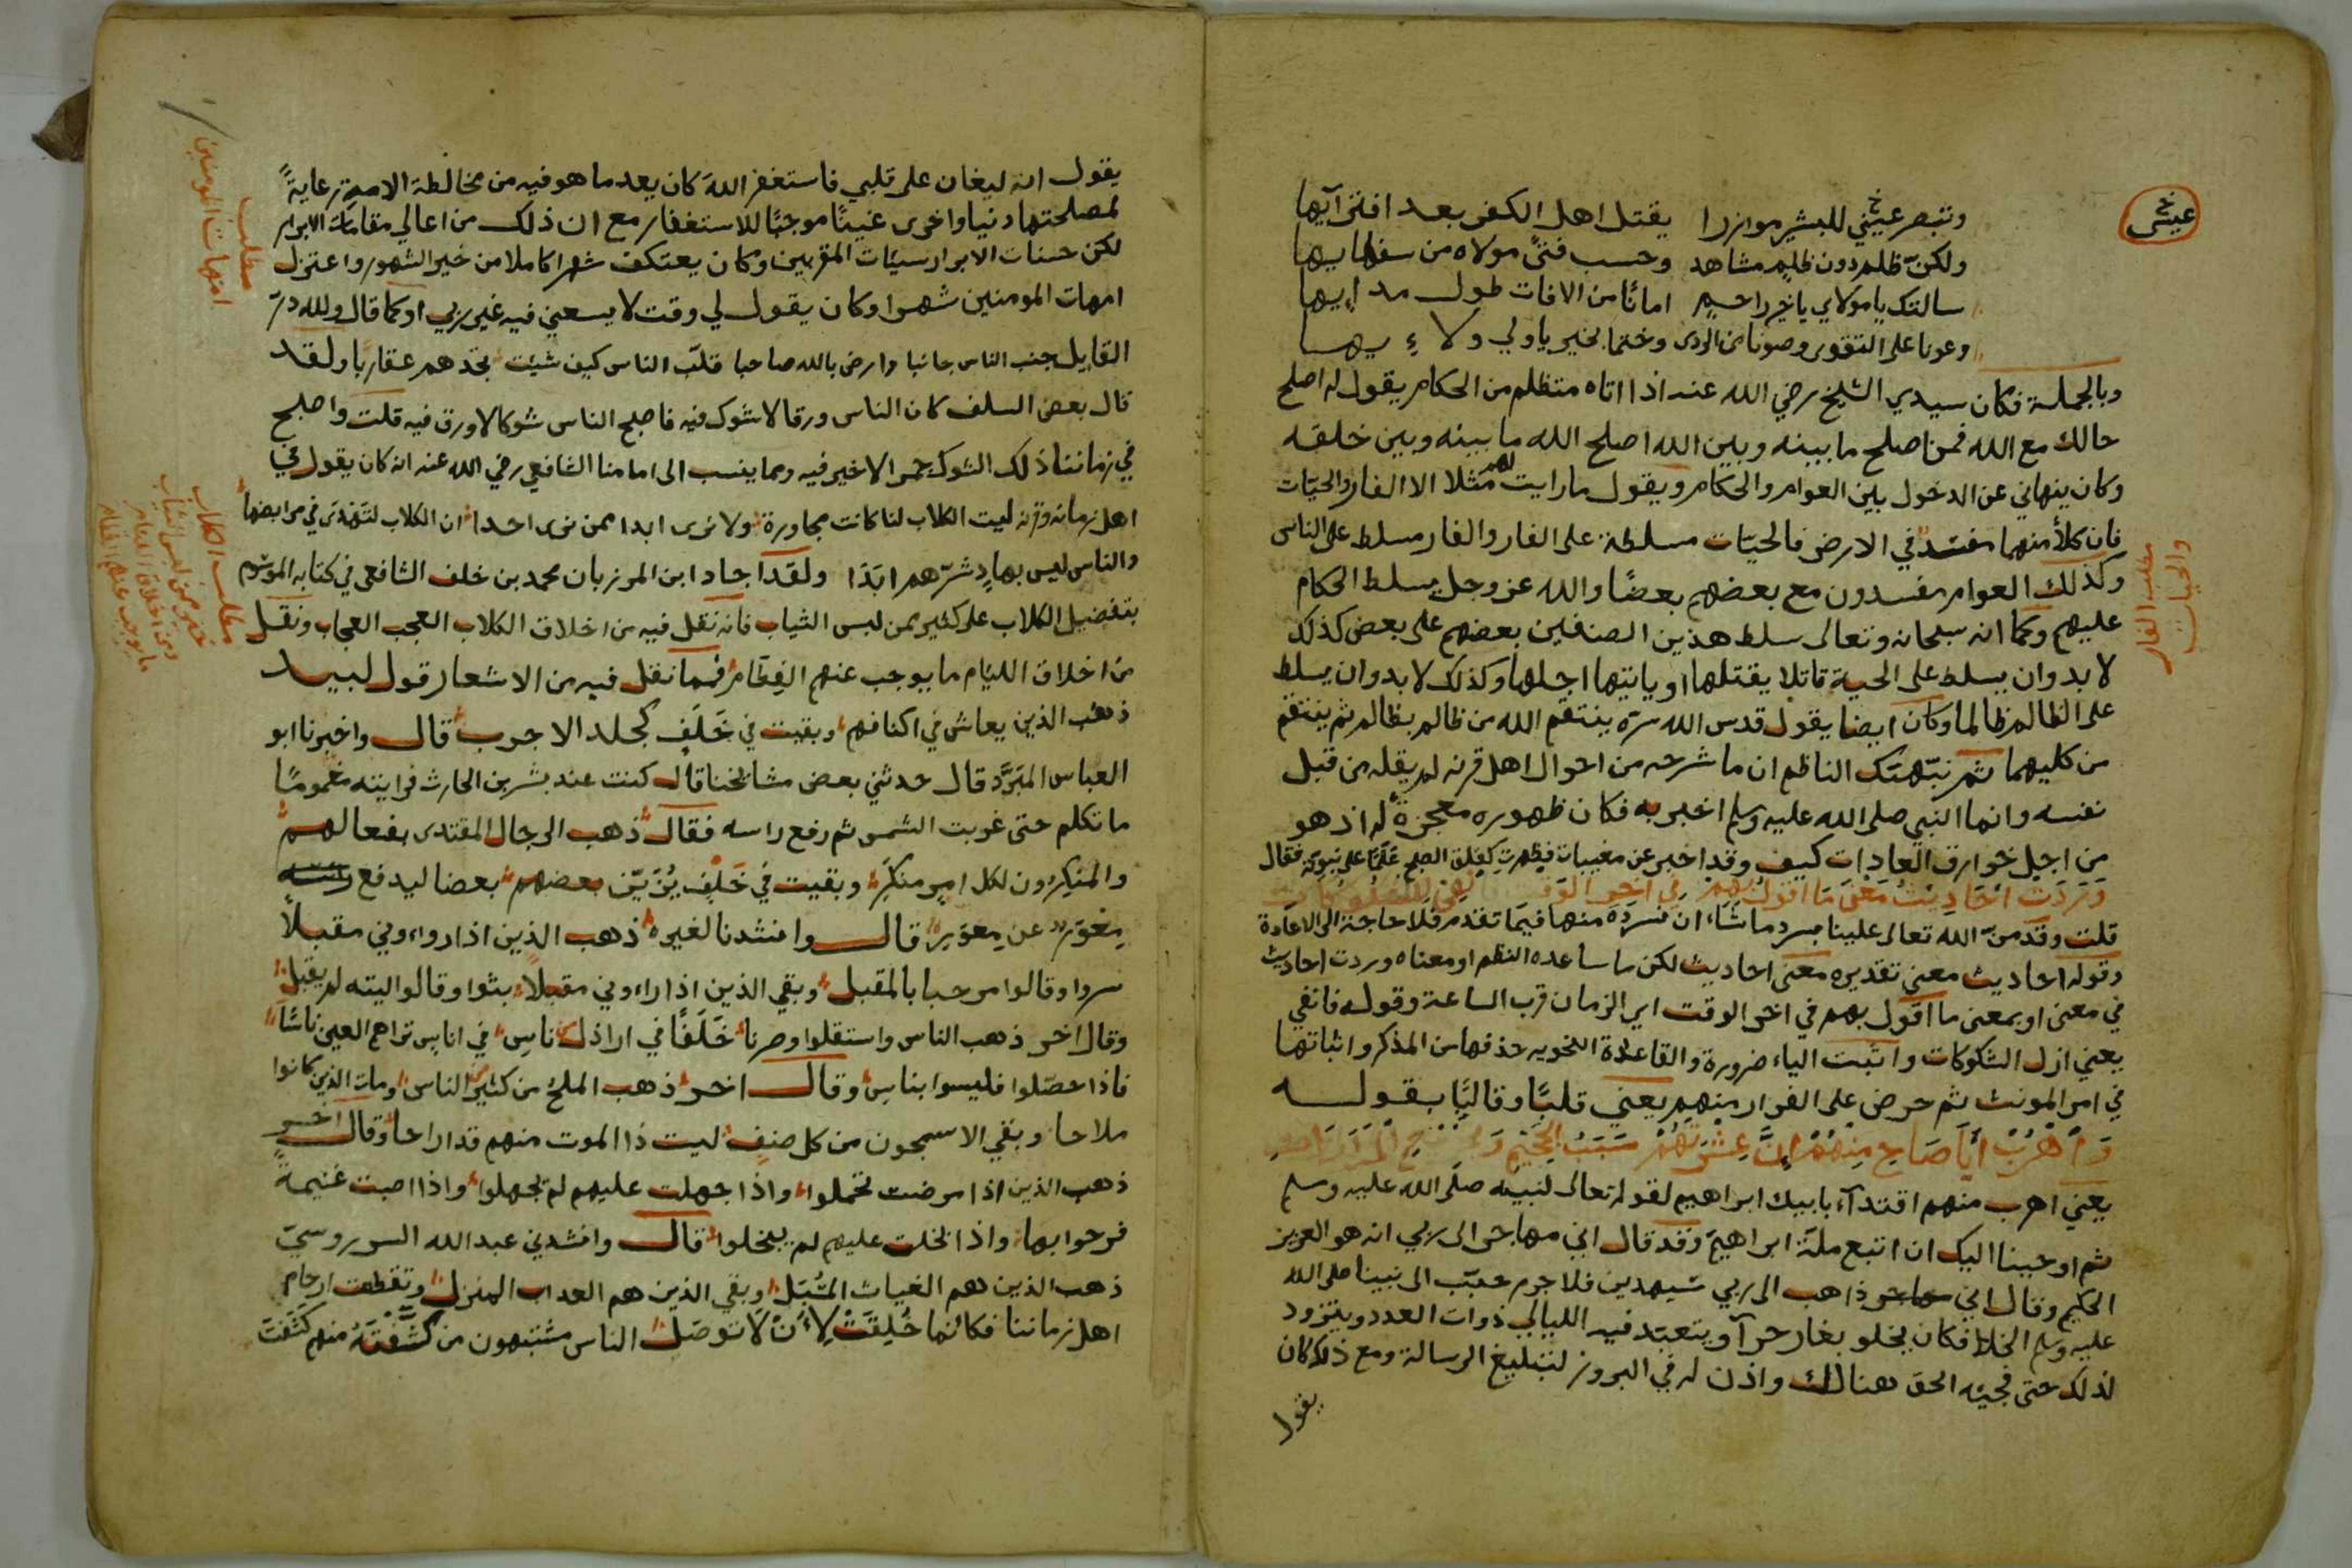 عيشى
وتبصر عيني للبشير موازرا يقتل اهل الكفر بعد افترآيها
ولكن ظلم دون ظلم مشاهد وحسب فتى مولاه من سفهايها
سالتك يا مولاي يا خير راحم امانا من الافات طول مد ايها
وعونا على التقوى وصونا من الردى وختما بخير يا ولي ولاءيها
وبالجملة فكان سيدي الشيخ رضي الله عنه اذا اتاه متظلم من الحكام يقول له اصلح
حالك مع الله فمن اصلح ما بينه وبين الله اصلح الله ما بينه وبين خلقه
وكان ينهاني عن الدخول بين العوام والحكام ويقول ما رايت لهم مثلا الا الفار والحيّات
فان كلاً منهما مفسد في الارض فالحيّات مسلطة على الفار والفار مسلط على الناس
مطلب الفار والحيات
وكذلك العوام مفسدون مع بعضهم بعضًا والله عز وجل يسلط الحكام
عليهم وكما انه سبحانه وتعالى سلط هذين الصنفين بعضهم على بعض كذلك
لا بد وان يسلط على الحية قاتلا يقتلها او ياتيها اجلها وكذلك لا بد وان يسلط
على الظالم ظالما وكان ايضا يقول قدس الله سره ينتقم الله من ظالم بظالم ثم ينتقم
من كليهما ثم نبّهتك الناظم ان ما شرحه من احوال اهل قرنه لم يقله من قبل
نفسه وانما النبي صلى الله عليه وسلم اخبر به فكان ظهوره معجزة له اذ هو
من اجل خوارق العادات كيف وقد اخبر عن مغيبات فظهرت كفلق الصبح علما على نبوته فقال
وَرَدَت احَادِيثُ مَعْنى مَا اقولُ بهم في اخر الوقت
قلت وقد منّ الله تعالى علينا بسرد ما شاء ان نسرده منها فيما تقدم فلا حاجة الى الاعادة
وقوله احاديث معنى تقديره معنى احاديث لكن ما ساعده النظم او معناه وردت احاديث
في معنى او بمعنى ما اقول بهم في اخر الوقت اي الزمان قرب الساعة وقوله فانفي
يعني ازل الشكوكات واثبت الياء ضرورة والقاعدة النحويه حذفها من المذكر واثباتها
في امر المونث ثم حرض على الفرار منهم يعني قلبًا وقالبًا بقوله
وَاهْرُبْ أيَا صَاحِ مِنْهُمْ إنَّ عِشْرَتَهُمْ سَبَبُ
يعني اهرب منهم اقتدآء بابيك ابراهيم لقوله تعالى لنبيه صلى الله عليه وسلم
ثم اوحينا اليك ان اتبع ملة ابراهيم وقد قال اني مهاجر الى ربي انه هو العزيز
الحكيم وقال اني ذاهب الى ربي سيهدين فلا جرم حبّب الى نبينا صلى الله
عليه وسلم الخلا فكان يخلو بغار حرآ ويتعبّد فيه الليالي ذوات العدد ويتزود
لذلك حتى فجئه الحق هنالك واذن له في البروز لتبليغ الرسالة ومع ذلك كان
يقول
يقول انه ليغان على قلبي فاستغفر الله كان يعد ما هو فيه من مخالطة الامة رعايةً
لمصلحتها دنيا واخرى غينًا موجبًا للاستغفار مع ان ذلك من اعالي مقامات الابرار
لكن حسنات الابرار سيّات المقربين وكان يعتكف شهرا كاملا من خير الشهور واعتزل
امهات المومنين شهرا وكان يقول لي وقت لا يسعني فيه غير ربي او كما قال ولله در
مطلب امهات المومنين
القايل جنب الناس جانبا وارض بالله صاحبا قلّب الناس كيف شيت تجدهم عقاربا ولقد
قال بعض السلف كان الناس ورقا لا شوك فيه فاصبح الناس شوكا لا ورق فيه قلت واصبح
في زماننا ذلك الشوك جمرا لاخير فيه ومما ينسب الى امامنا الشافعي رضي الله عنه انه كان يقول في
اهل زمانه وقرنه ليت الكلاب لنا كانت مجاورة ولا نرى ابدا ممن نرى احدا ان الكلاب لتهدى في مرابضها
والناس ليس بهادٍ شرّهم ابَدَا ولقد اجاد ابن المرزبان محمد بن خلف الشافعي في كتابه الموسوم
بتفضيل الكلاب على كثير ممن لبس الثياب فانه نقل فيه من اخلاق الكلاب العجب العجاب ونقل
من اخلاق الليام ما يوجب عنهم الفِطَام فمما نقل فيه من الاشعار قول لبيد
ذهب الذين يعاش في اكنافهم وبقيت في خَلَفٍ كجلد الاجرب قال واخبرنا ابو
العباس المبَرَّد قال حدثني بعض مشايخنا قال كنت عند بشر بن الحارث فرايته مغمومًا
ما تكلم حتى غربت الشمس ثم رفع راسه فقال ذهب الرجال المقتدى بفعالهم
والمنكِرون لكل امرٍ منكَرِ وبقيت في خَلَفٍ يُزَيّن بعضهم بعضا ليدفع
مِعْوَر عن مِعْوِرِ قال وانشدنا لغيره ذهب الذين اذا راوني مقبلاً
سروا وقالوا مرحبا بالمقبل وبقي الذين اذا راوني مقبلاً بثوا وقالوا ليته لم يقبل
وقال اخر ذهب الناس واستقلوا وصرنا خَلَفًا في اراذل ناس في اناس تراهم العين ناسًا
فاذا حصّلوا فليسوا بناس وقال اخر ذهب الملح من كثير الناس ومات الذين كانوا
ملاحا وبقي الاسمجون من كل صنف ليت ذا الموت منهم قد اراحا وقال اخر
ذهب الذين اذا مرضت تحملوا واذا جهلت عليهم لم يجهلوا واذا اصبت غنيمة
فرحوا بها واذا بخلت عليهم لم يبخلوا قال وانشدني عبد الله السوروسيّ
ذهب الذين هم الغياث المُسْبَل وبقي الذين هم العذاب المنزل وتقطعت ارحام
اهل زماننا فكانما خُلِقَتْ لِأَنْ لَا توصَل الناس مشتبهون من كَشَّفْتَهُ منهم كَشَفْتَ